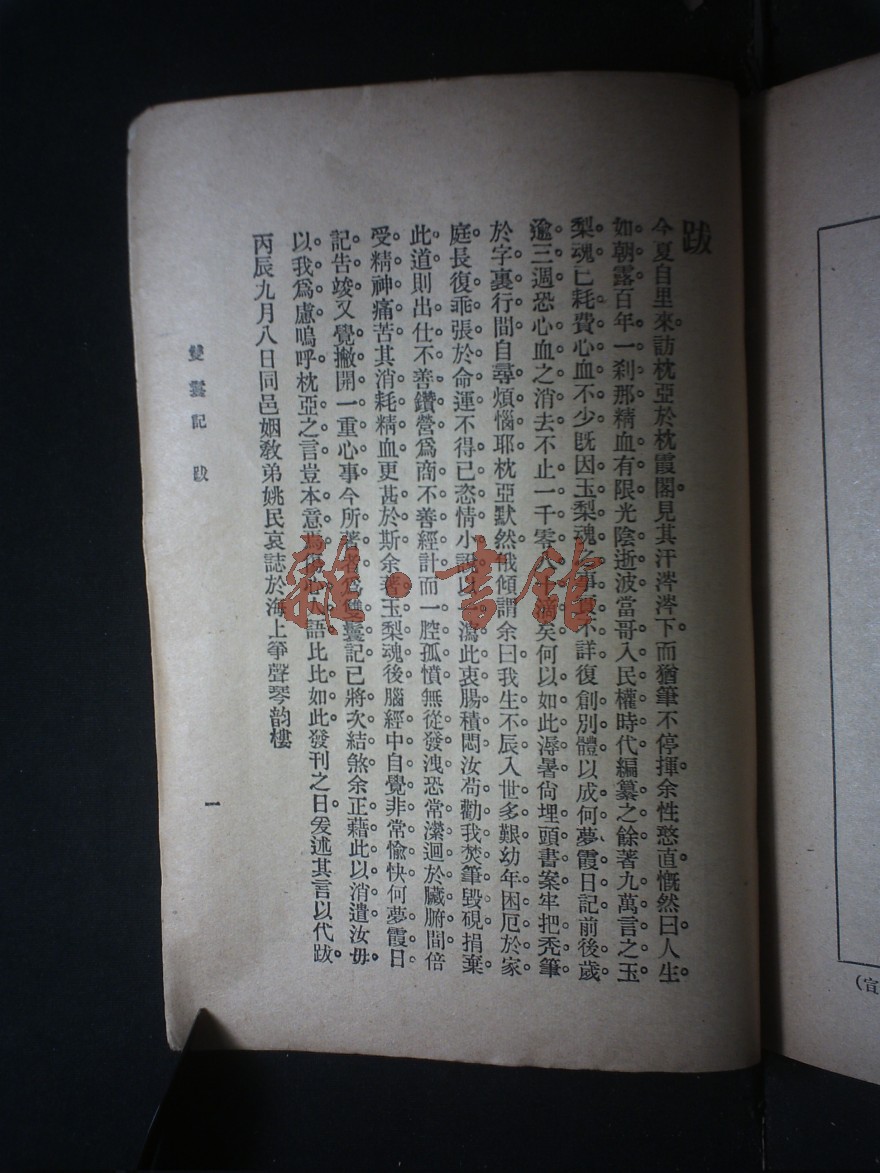 跋
今夏自里來訪枕亞於枕霞閣見其汗涔涔下而猶筆不停揮余性憨直慨然曰人生
如朝露百年一剎那精血有限光陰逝波當哥入民權時代編纂之餘著九萬言之玉
梨魂已耗費心血不少旣因玉梨魂之事實不詳復創別體以成何夢霞日記前後歲
逾三週恐心血之消去不止一千零八十滴矣何以如此溽暑尙埋頭書案牢把禿筆
於字裏行間自尋煩惱耶枕亞默然俄傾謂余曰我生不辰入世多艱幼年困厄於家
庭長復乖張於命運不得已恣情小說以一瀉此衷腸積悶汝苟勸我焚筆毀硯捐棄
此道則出仕不善鑽營爲商不善經計而一腔孤憤無從發洩恐常瀠迴於臟腑間倍
受精神痛苦其消耗精血更甚於斯余著玉梨魂後腦經中自覺非常愉快何夢霞日
記告竣又覺撇開一重心事今所著者爲雙鬟記已將次結煞余正藉此以消遣汝毋
以我爲慮嗚呼枕亞之言豈本意爲傷心人語比比如此發刊之日爰述其言以代跋
丙辰九月八日同邑姻敎弟姚民哀誌於海上箏聲琴韵樓
雙鬟記 跋
一
雜·書館
(宣